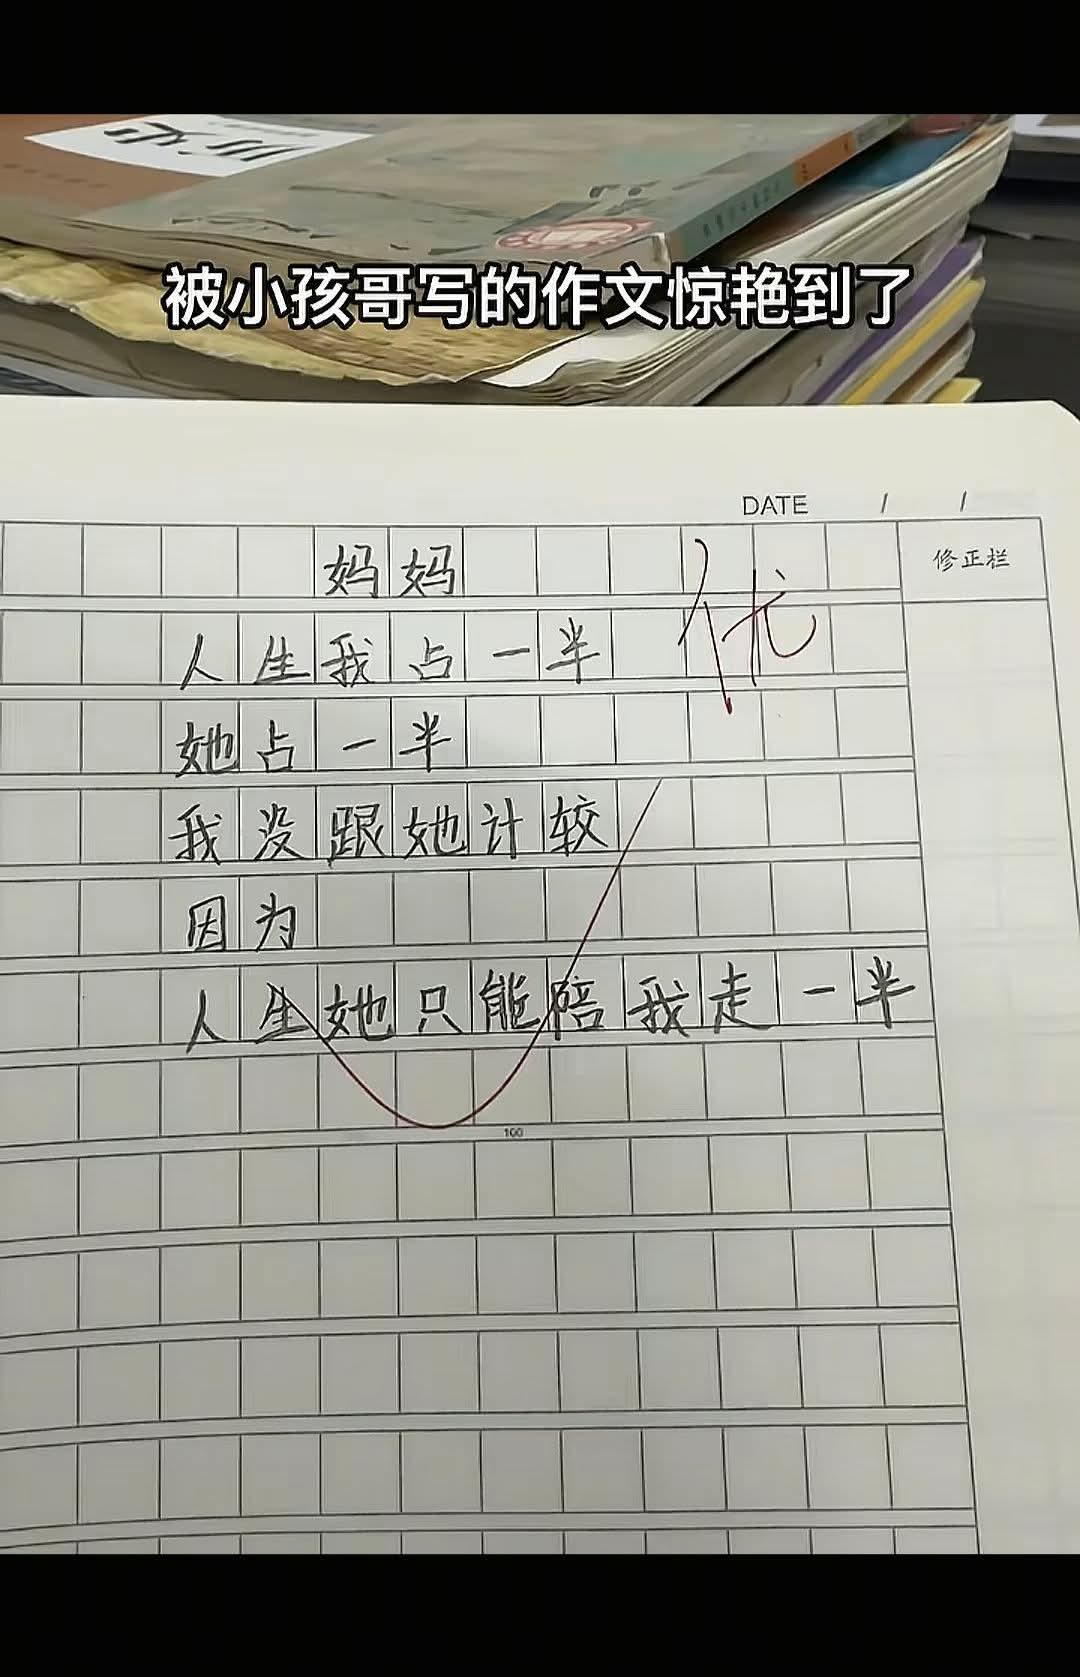 历史
被小孩哥写的作文惊艳到了
DATE / /
修正栏
妈妈
优
人生我占一半
她占一半
我没跟她计较
因为
人生她只能陪我走一半
100